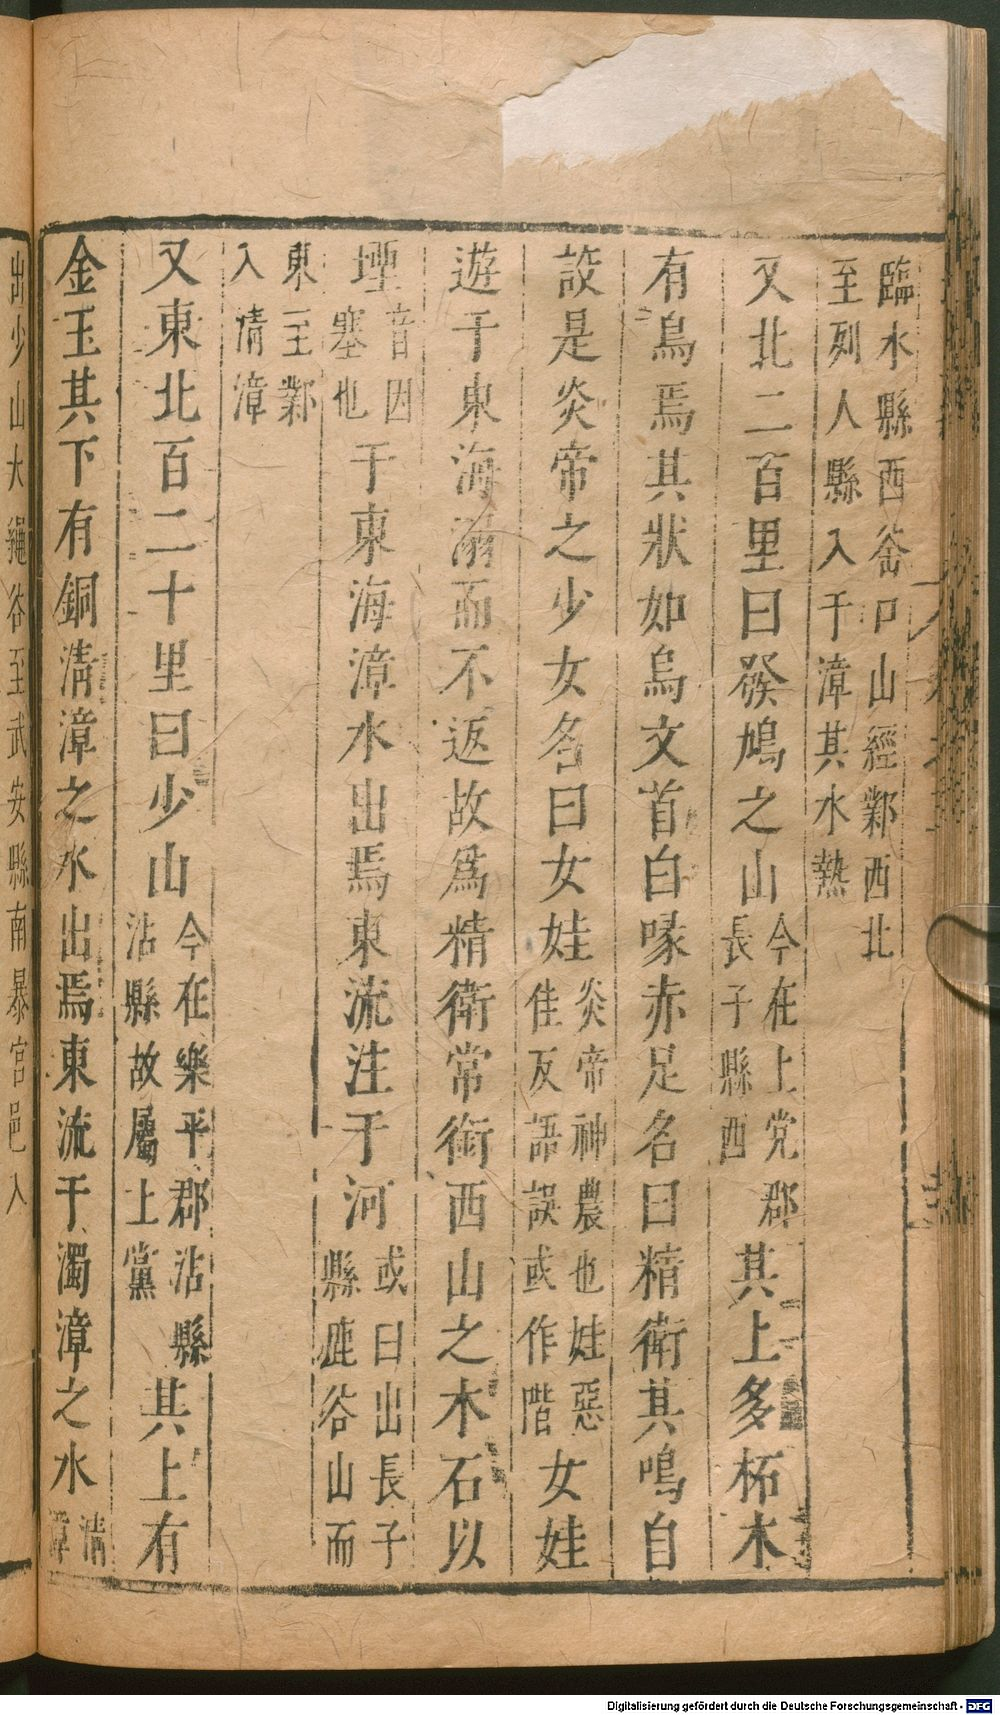 臨水縣西釜口山經鄴西北
至列人縣入于漳其水熱
又北二百里曰發鳩之山今在上党郡長子縣西其上多柘木
有鳥焉其狀如烏文首白喙赤足名曰精衛其鳴自
詨是炎帝之少女名曰女娃炎帝神農也娃惡佳反語誤或作階女娃
遊于東海溺而不返故爲精衛常銜西山之木石以
堙音因塞也于東海漳水出焉東流注于河或曰出長子縣鹿谷山而
東至鄴入清漳
又東北百二十里曰少山今在樂平郡沾縣沾縣故屬上黨其上有
金玉其下有銅清漳之水出焉東流于濁漳之水清漳
出少山大繩谷至武安縣南暴宮邑入
Digitalisierung gefördert durch die Deutsche Forschungsgemeinschaft - DFG